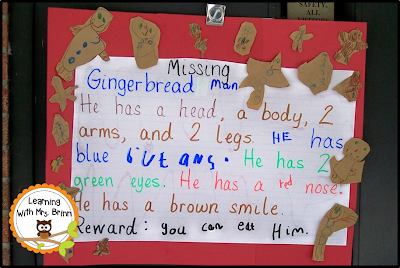 SAFETY,
ALL
VISITORS
Missing
Gingerbread man
He has a head, a body, 2
arms, and 2 legs. HE has
blue buttans. He has 2
green eyes. He has a red nose.
He has a brown smile.
Reward: you can eat Him.
Learning
With Mrs. Brinn